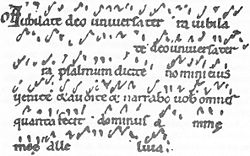 Iubilate deo uniuersa ter ra iubila
te deo uniuersa ter
ra psalmum dicite nomini eius
uenite & audite & narrabo uob omnes
quanta fecit dominus a nime
mee alle luia